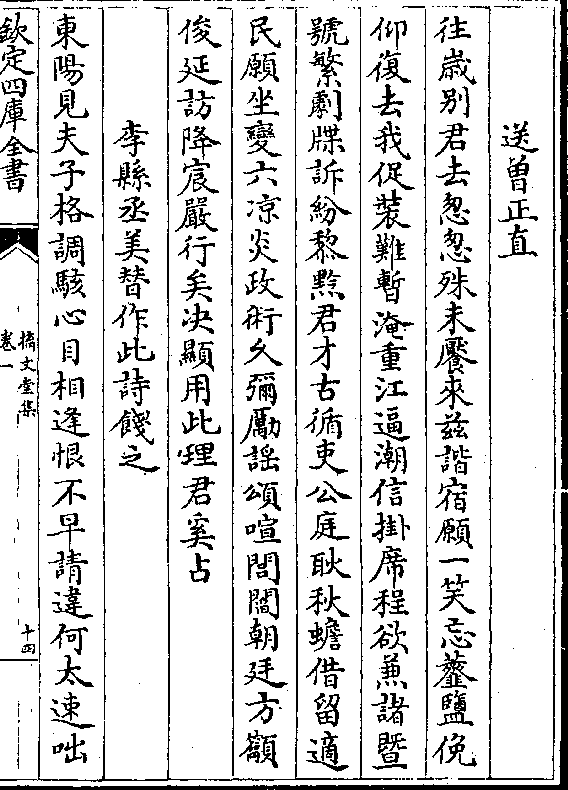 送曾正直
往歳别君去怱怱殊未饜來兹諧宿願一笑忘虀鹽俛
仰復去我促裝難暫淹重江逼潮信掛席程欲兼諸暨
號繁劇牒訴紛黎黔君才古循吏公庭耿秋蟾借留適
民願坐變六凉炎政術乆彌勵謡頌喧閭閻朝廷方籲
俊延訪降宸嚴行矣决顯用此理君奚占
李縣丞美替作此詩餞之
東陽見夫子格調駭心目相逢恨不早請違何太速咄
欽定四庫全書
橘文堂集
卷一
十四